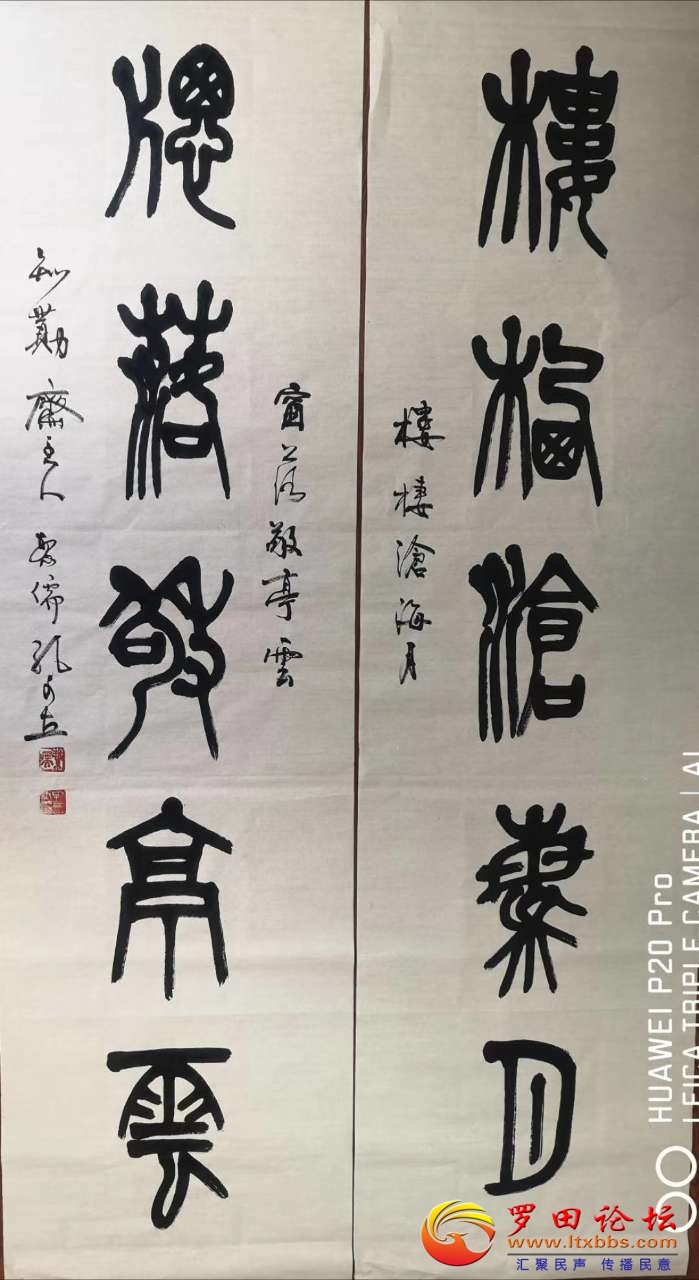 樓栖滄海月
樓棲滄海月
牕落敬亭雲
窗落敬亭雲
知勤齋主人
HUAWEI P20 Pro
LEICA TRIPLE CAMERA | AI
罗田论坛
www.ltxbbs.com
汇聚民声 传播民意